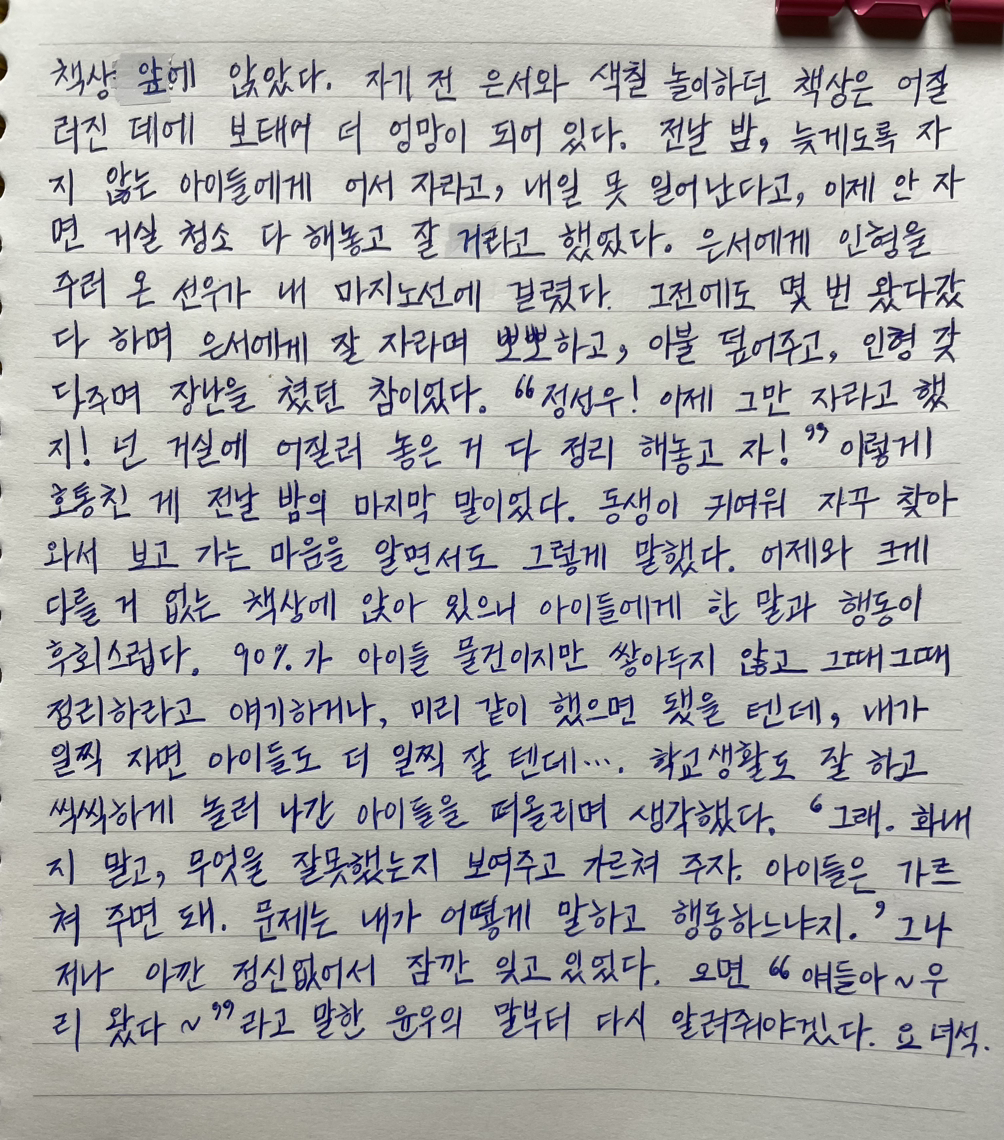 책상 앞에 앉았다. 자기 전 은서와 색칠 놀이하던 책상은 어질
러진 데에 보태어 더 엉망이 되어 있다. 전날 밤, 늦게도록 자
지 않는 아이들에게 어서 자라고, 내일 못 일어난다고, 이제 안 자
면 거실 청소 다 해놓고 잘 거라고 했었다. 은서에게 인형을
주러 온 선우가 내 마지노선에 걸렸다. 그전에도 몇 번 왔다갔
다 하며 은서에게 잘 자라며 뽀뽀하고, 이불 덮어주고, 인형 갖
다주며 장난을 쳤던 참이었다. “정선우! 이제 그만 자라고 했
지! 넌 거실에 어질러 놓은 거 다 정리 해놓고 자!” 이렇게
호통친 게 전날 밤의 마지막 말이었다. 동생이 귀여워 자꾸 찾아
와서 보고 가는 마음을 알면서도 그렇게 말했다. 어제와 크게
다를 거 없는 책상에 앉아 있으니 아이들에게 한 말과 행동이
후회스럽다. 90%가 아이들 물건이지만 쌓아두지 않고 그때그때
정리하라고 얘기하거나, 미리 같이 했으면 됐을 텐데, 내가
일찍 자면 아이들도 더 일찍 잘 텐데…. 학교생활도 잘 하고
씩씩하게 놀러 나간 아이들을 떠올리며 생각했다. ‘그래. 화내
지 말고, 무엇을 잘못했는지 보여주고 가르쳐 주자. 아이들은 가르
쳐 주면 돼. 문제는 내가 어떻게 말하고 행동하느냐지.’ 그나
저나 아깐 정신없어서 잠깐 잊고 있었다. 오면 “얘들아~우
리 왔다~”라고 말한 윤우의 말부터 다시 알려줘야겠다. 요 녀석.